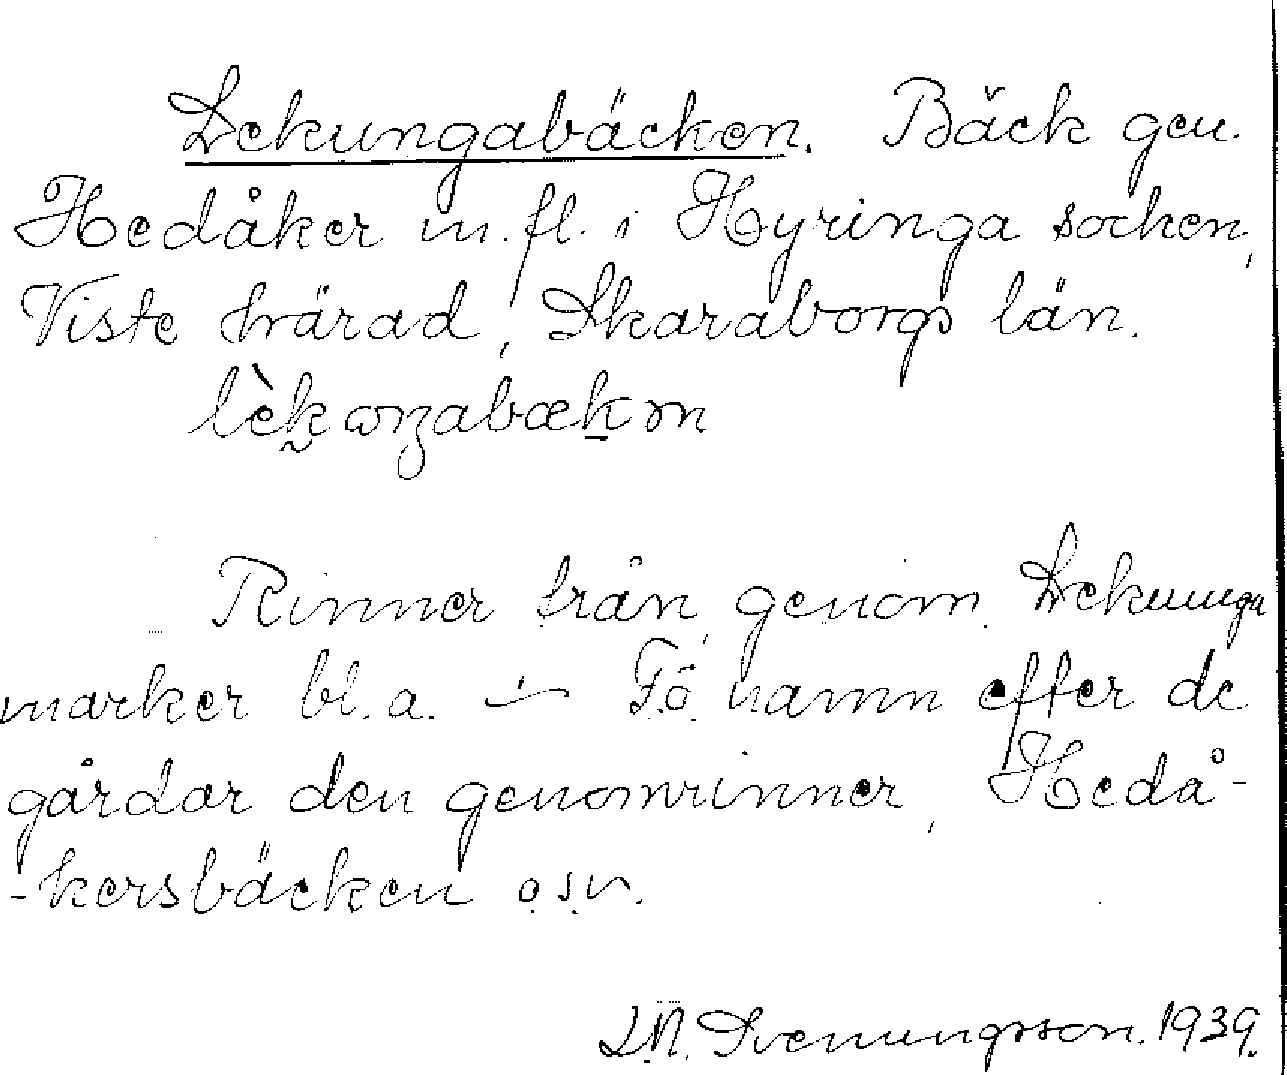 Lekungabäcken. Bäck gen.
Hedåker m. fl. i Hyringa socken,
Viste härad, Skaraborgs län.
Rinner från, genom Lekunga
marker bl. a. – Få namn efter de
gårdar den genomrinner, Hedå-
-kersbäcken o.s.v.
L.N. Svenungsson. 1939.